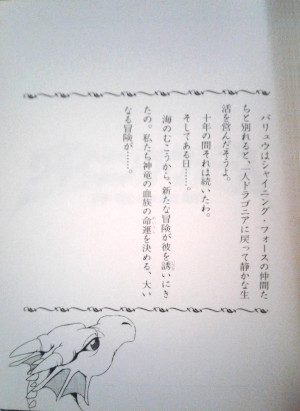 バリュウはシャイニング・フォースの仲間た
ちと別れると、一人ドラゴニアに戻って静かな生
活を営んだそうよ。
十年の間それは続いたわ。
そしてある日……。
海のむこうから、新たな冒険が彼を誘いにき
たの。私たち神竜の血族の命運を決める、大い
なる冒険が……。